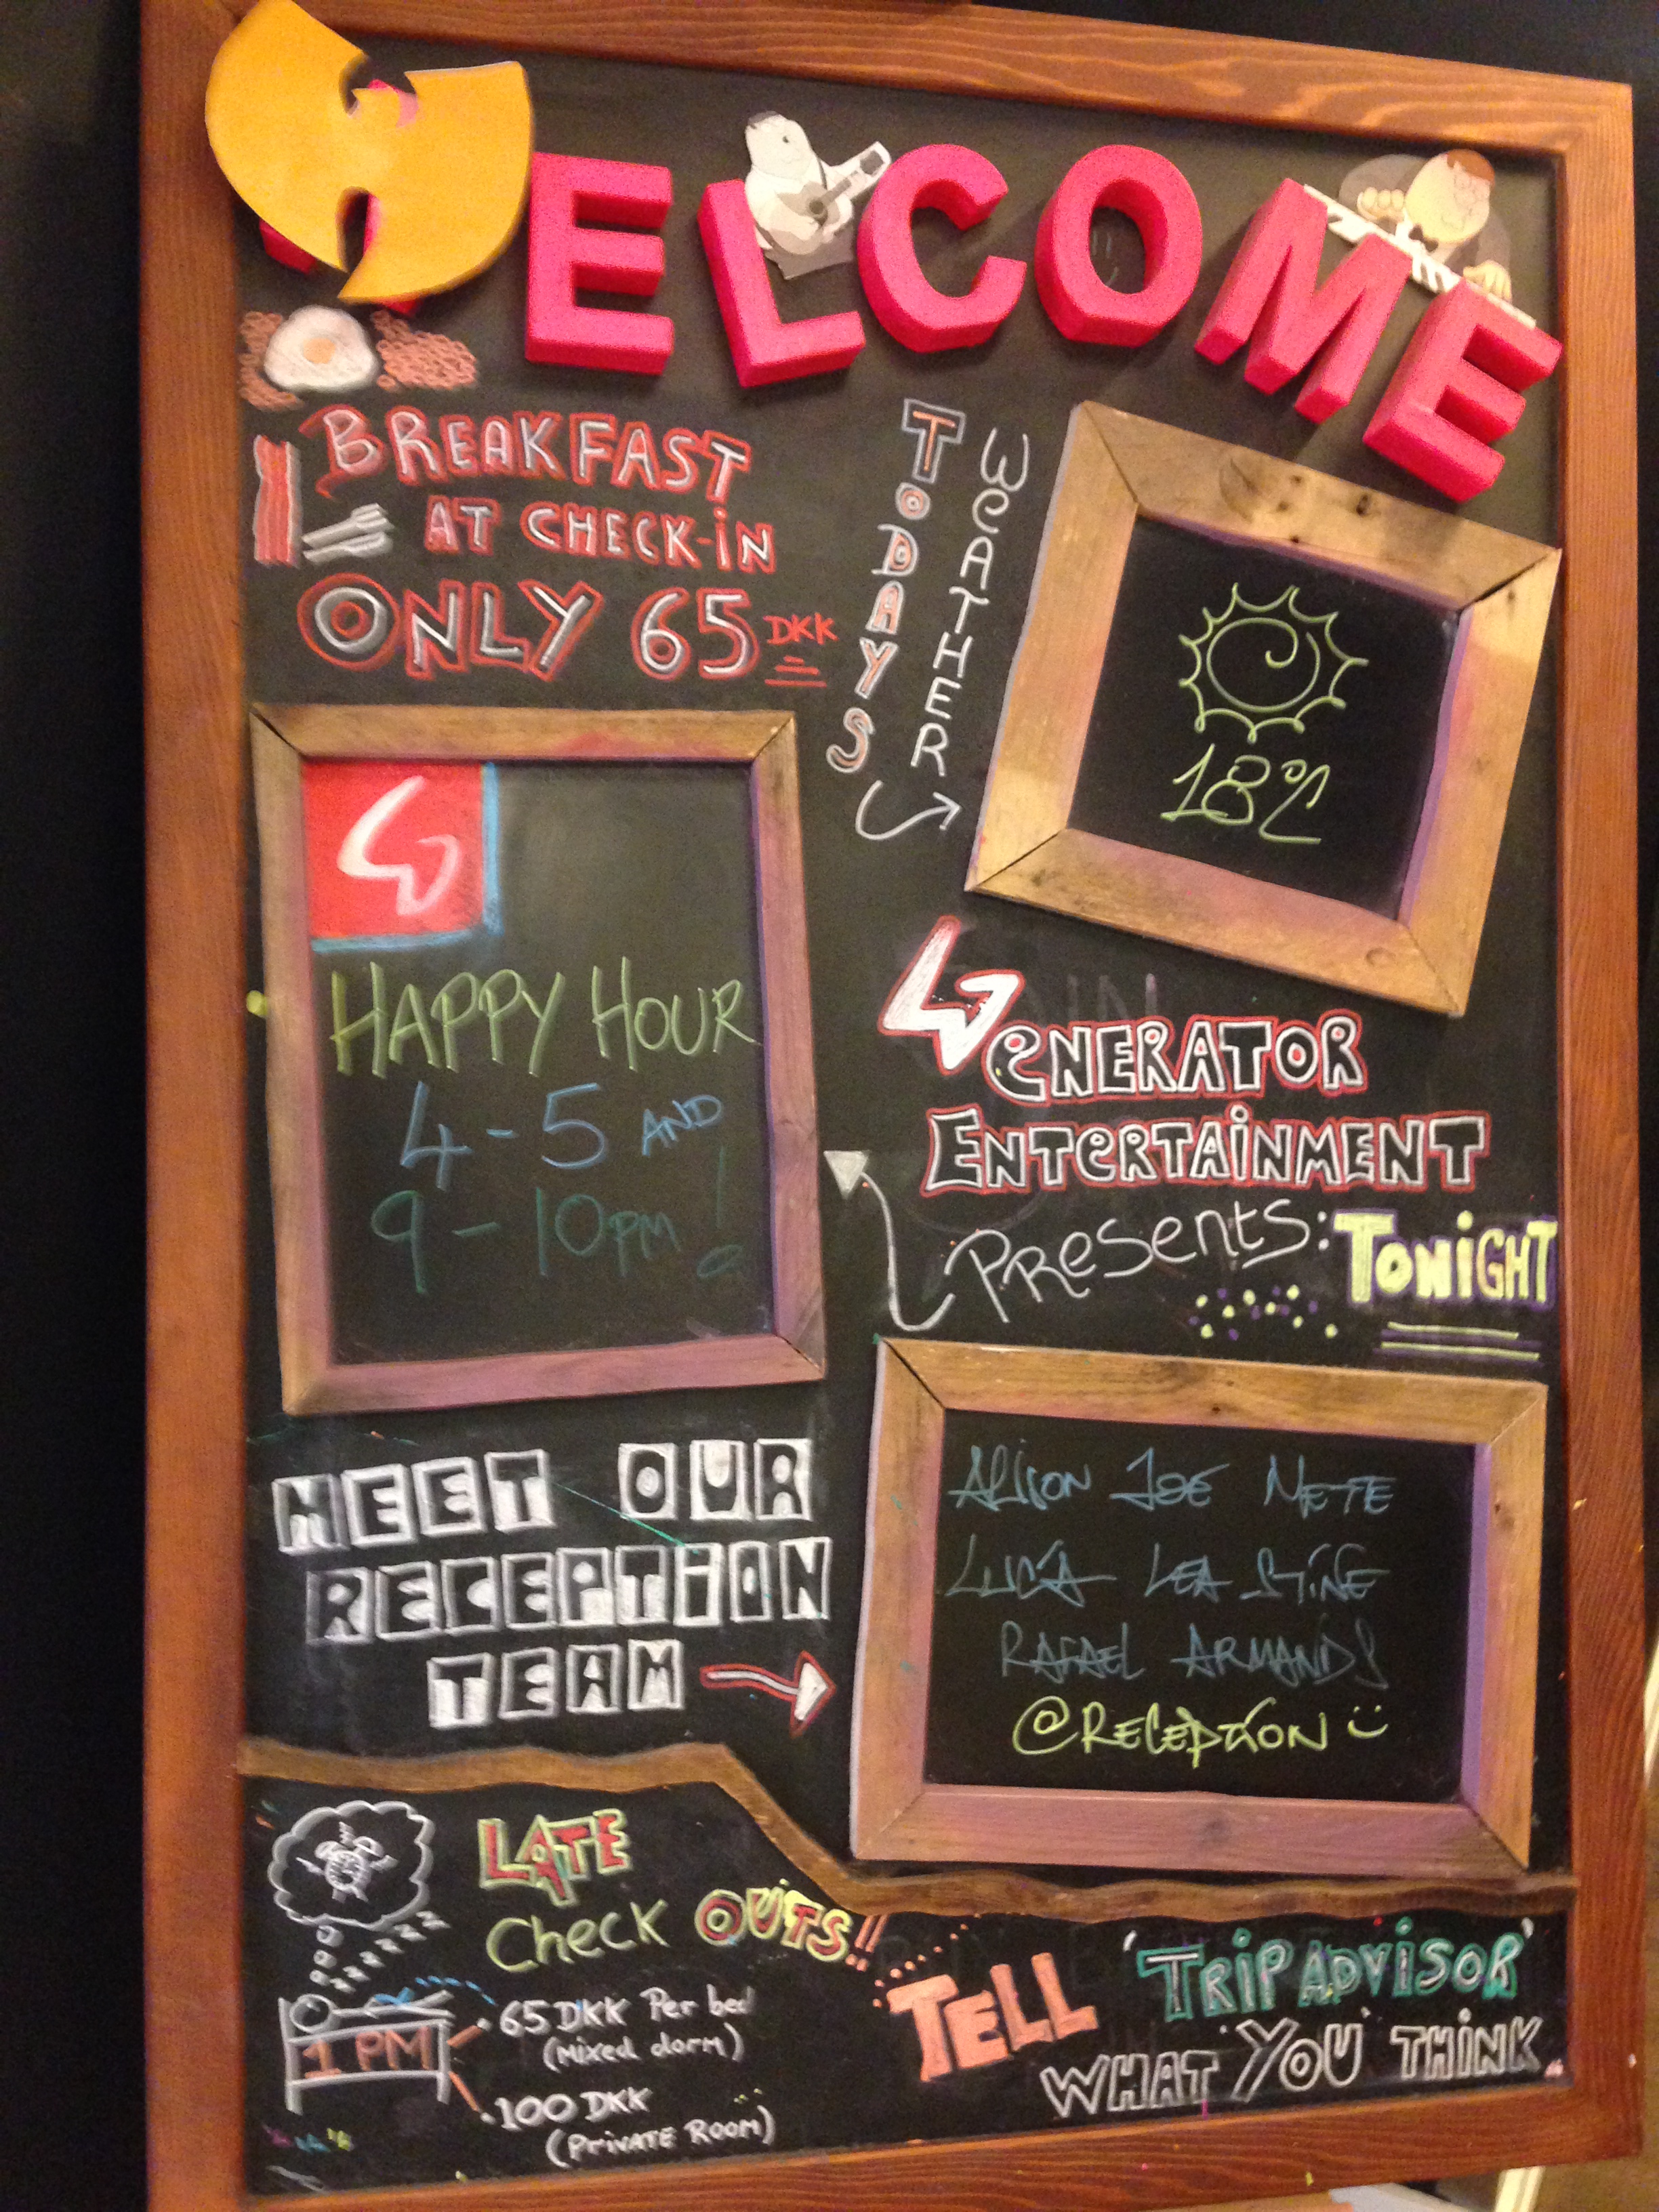 WELCOME
BREAKFAST
AT CHECK-IN
ONLY 65 DKK
TODAYS
WEATHER
18°C
G
HAPPY HOUR
4-5 AND
9-10PM!
GENERATOR
ENTERTAINMENT
PRESENTS: TONIGHT
MEET OUR
RECEPTION
TEAM
ALISON JOE METE
LUCA LEA STINE
RAFAEL ARMANDS
@RECEPTION
LATE
Check OUTS!!
1 PM
65 DKK Per bed
(Mixed dorm)
100 DKK
(PRIVATE ROOM)
TELL 'TRIPADVISOR'
WHAT YOU THINK